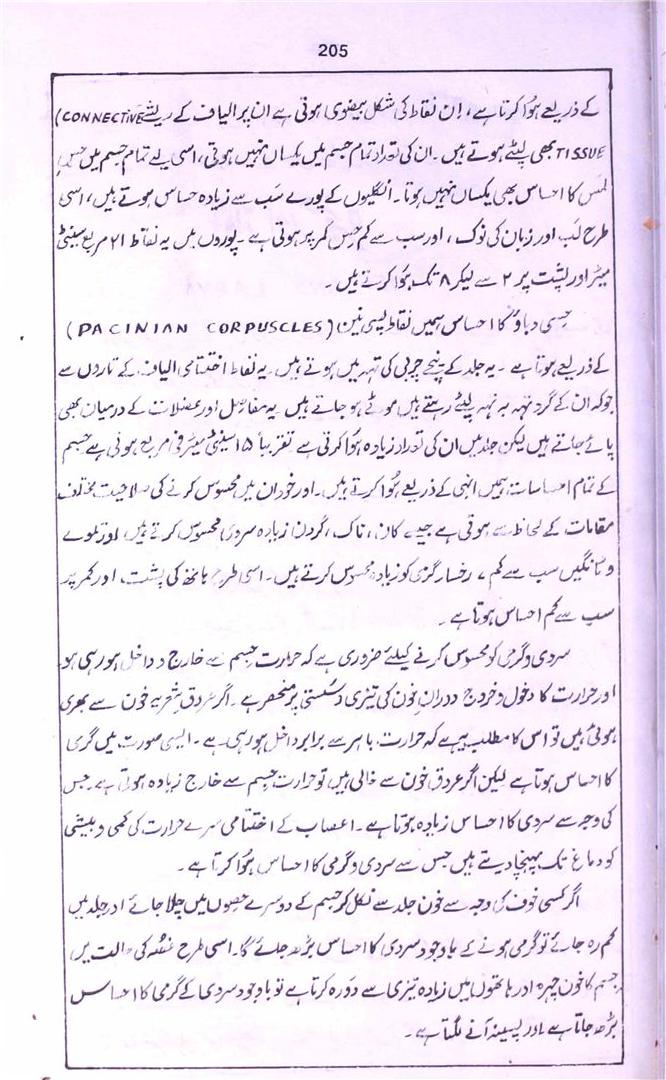 205
کے ذریعے ہُوا کرتا ہے، اِن نقاط کی شکل بیضوی ہوتی ہے ان پر الیاف کے ریشے (CONNECTIVE
TISSUE بھی لپٹے ہوتے ہیں۔ ان کی تعداد تمام جسم میں یکساں نہیں ہوتی، اسی لیے تمام جسم میں حسِ
لمس کا احساس بھی یکساں نہیں ہوتا۔ انگلیوں کے پورے سب سے زیادہ حساس ہوتے ہیں، اسی
طرح لَب اور زبان کی نوک، اور سب سے کم حِس کمر پر ہوتی ہے۔ پوروں میں یہ نقاط ۲۱ مربع سینٹی
میٹر اور پشت پر ۲ سے لیکر ۸ تک ہُوا کرتے ہیں۔
حِسی دباؤ کا احساس ہمیں نقاط پسی نین (PACINIAN CORPUSCLES)
کے ذریعے ہوتا ہے۔ یہ جلد کے نیچے چربی کی تہہ میں ہوتے ہیں۔ یہ نقاط اختتامی الیاف کے تاروں سے
جو کہ ان کے گرد تہہ بہ تہہ لپٹے رہتے ہیں موٹے ہو جاتے ہیں۔ یہ مفاصل اور عضلات کے درمیان بھی
پائے جاتے ہیں لیکن جلد میں ان کی تعداد زیادہ ہُوا کرتی ہے تقریباً ۱۵ سینٹی میٹر فی مربع ہوتی ہے جسم
کے تمام احساسات ہمیں انہی کے ذریعے ہُوا کرتے ہیں۔ اور خود ان میں محسوس کرنے کی صلاحیت مختلف
مقامات کے لحاظ سے ہوتی ہے جیسے کان، ناک، گردن زیادہ سردی محسوس کرتے ہیں، اور تلوے
و ٹانگیں سب سے کم، رخسار گرمی کو زیادہ محسوس کرتے ہیں۔ اسی طرح ہاتھ کی پشت، اور کمر پر
سب سے کم احساس ہوتا ہے۔
سردی و گرمی کو محسوس کرنے کیلئے ضروری ہے کہ حرارت جسم سے خارج و داخل ہو رہی ہو
اور حرارت کا دخول و خروج دورانِ خون کی تیزی و سُستی پر منحصر ہے۔ اگر عروق شعریہ خون سے بھری
ہوئی ہیں تو اس کا مطلب یہ ہے کہ حرارت باہر سے برابر داخل ہو رہی ہے۔ ایسی صورت میں گرمی
کا احساس ہوتا ہے لیکن اگر عروق خون سے خالی ہیں تو حرارت جسم سے خارج زیادہ ہوتی ہے جس
کی وجہ سے سردی کا احساس زیادہ ہوتا ہے۔ اعصاب کے اختتامی سرے حرارت کی کمی و بیشی
کو دماغ تک پہنچا دیتے ہیں جس سے سردی و گرمی کا احساس ہُوا کرتا ہے۔
اگر کسی خوف کی وجہ سے خون جلد سے نکل کر جسم کے دوسرے حصوں میں چلا جائے اور جلد میں
کم رہ جائے تو گرمی ہونے کے باوجود سردی کا احساس بڑھ جائے گا۔ اسی طرح غصہ کی حالت میں
جسم کا خون چہرہ اور ہاتھوں میں زیادہ تیزی سے دَورہ کرتا ہے تو باوجود سردی کے گرمی کا احساس
بڑھ جاتا ہے اور پسینہ آنے لگتا ہے۔